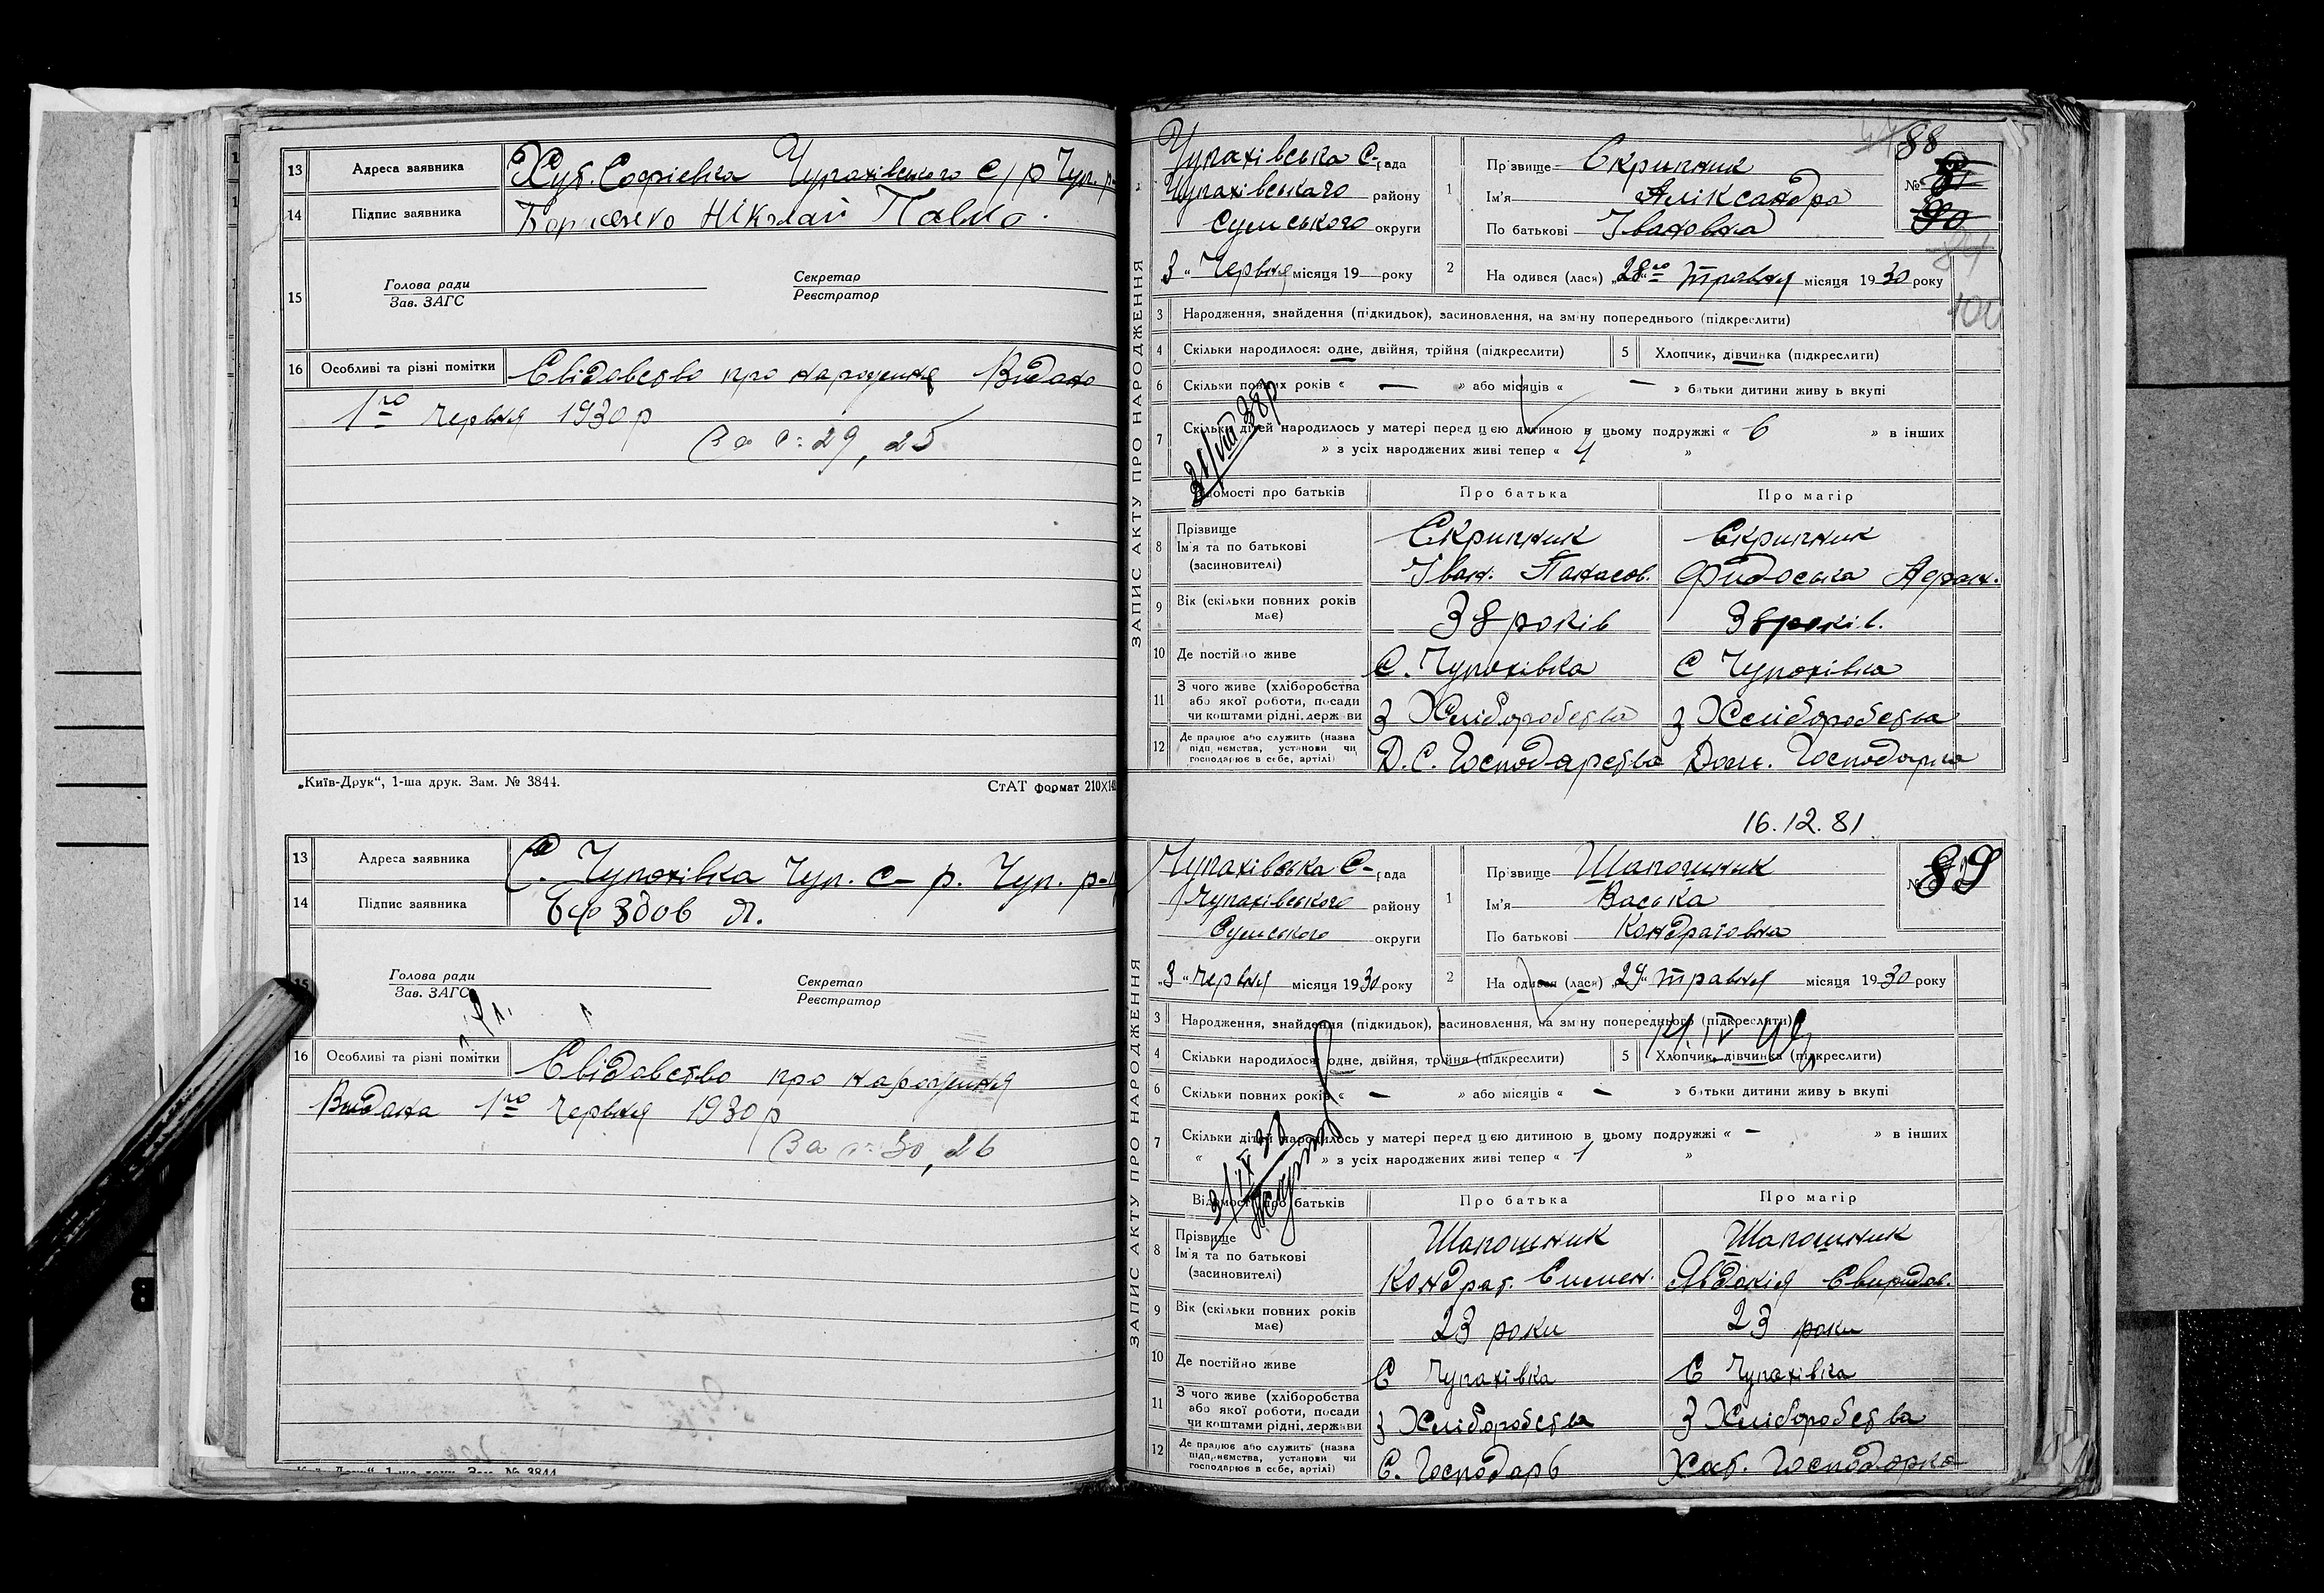 13 Адреса заявника Хут. Софієвка Чупахівського с/р Чуп. р-
14 Підпис заявника Борисенко Ніколай Павло.
15 Голова ради Секретар
Зав. ЗАГС Реєстратор
16 Особливі та різні помітки Свідовство про народження Видано
1го червня 1930 р
За с: 29, 25
„Київ-Друк“, 1-ша друк. Зам. № 3844. СтАТ формат 210X14
13 Адреса заявника С. Чупахівка Чуп. с-р. Чуп. р-
14 Підпис заявника
15 Голова ради Секретар
Зав. ЗАГС Реєстратор
16 Особливі та різні помітки Свідовство про народження
Видана 1го червня 1930 р
За с: 30, 26
ЗАПИС АКТУ ПРО НАРОДЖЕННЯ
88
Чупахівська С-рада
Чупахівського району
Сумського округи
3 „ Червня місяця 19 року
1 Прізвище Скрипник
Ім'я Аліксандра
По батькові Івановна
№ 90
84
100
2 На одився (лася) „28го Травня місяця 1930 року
3 Народження, знайдення (підкидьок), засиновлення, на зміну попереднього (підкреслити)
4 Скільки народилося: одне, двійня, трійня (підкреслити) 5 Хлопчик, дівчинка (підкреслити)
6 Скільки повних років « — » або місяців « — » батьки дитини живу ь вкупі
7 Скільки дітей народилось у матері перед цією дитиною в цьому подружжі « 6 » в інших
» з усіх народжених живі тепер « 4 »
21/VIII 38р
Відомості про батьків Про батька Про матір
8 Прізвище Скрипник Скрипник
Ім'я та по батькові Іван. Панасов. Фидоська Адрон.
(засиновителі)
9 Вік (скільки повних років має) 38 років 38 років.
10 Де постійно живе С. Чупахівка С Чупахівка
11 З чого живе (хліборобства або якої роботи, посади чи коштами рідні, держави З Хліборобства З Хліборобства
12 Де працює або служить (назва підприємства, установи чи господарює в себе, артілі) Д.С. Господарства Дом. Господарка
16.12.81.
ЗАПИС АКТУ ПРО НАРОДЖЕННЯ
Чупахівська С-рада
Чупахівського району
Сумського округи
„3 „ червня місяця 1930 року
1 Прізвище Шапошник
Ім'я Васька
По батькові Кондратовна
№ 89
2 На одився (лася) „29„ Травня місяця 1930 року
3 Народження, знайдення (підкидьок), засиновлення, на зміну попереднього (підкреслити)
4 Скільки народилося: одне, двійня, трійня (підкреслити) 5 Хлопчик, дівчинка (підкреслити)
6 Скільки повних років « — » або місяців « — » батьки дитини живу ь вкупі
7 Скільки дітей народилось у матері перед цією дитиною в цьому подружжі « — » в інших
« » з усіх народжених живі тепер « 1 »
Відомості про батьків Про батька Про матір
8 Прізвище Шапошник Шапошник
Ім'я та по батькові Кондрат. Симен. Явдокія Свиридов.
(засиновителі)
9 Вік (скільки повних років має) 23 роки 23 роки
10 Де постійно живе С Чупахівка С Чупахівка
11 З чого живе (хліборобства або якої роботи, посади чи коштами рідні, держави З Хліборобства З Хліборобства
12 Де працює або служить (назва підприємства, установи чи господарює в себе, артілі) С. Господарь Хат. Господорка